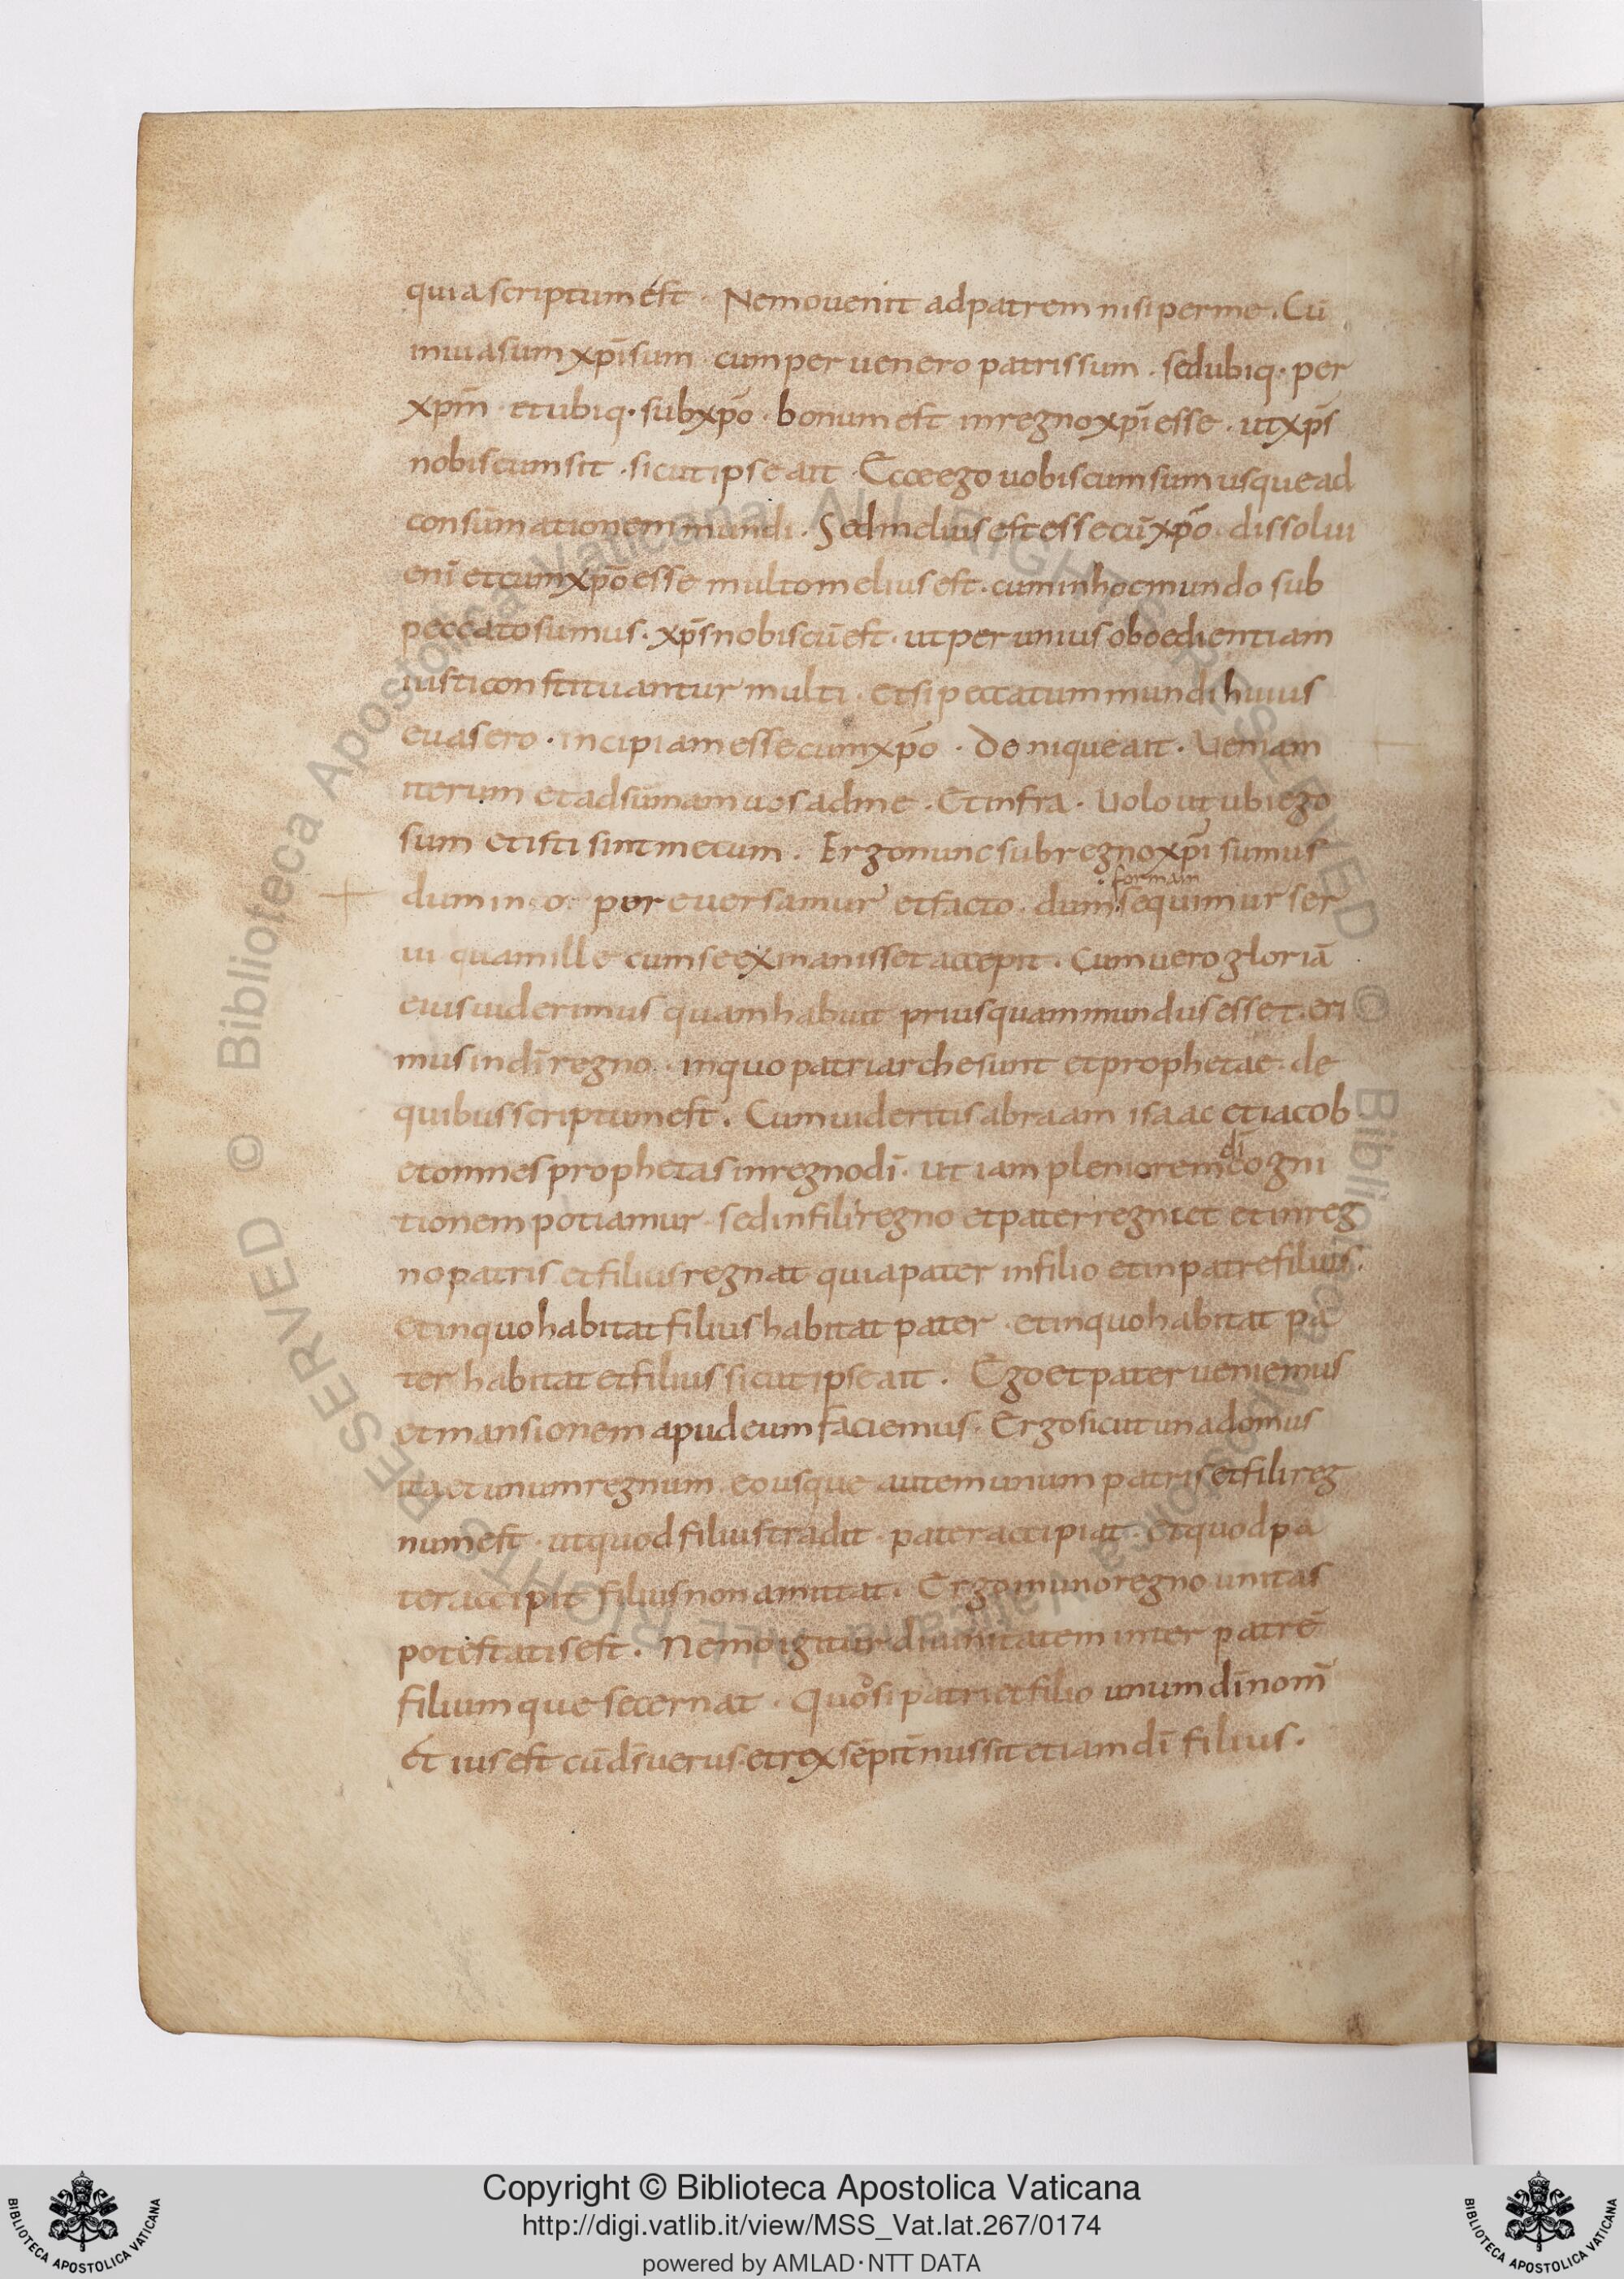 quia scriptum est · Nemo uenit ad patrem nisi per me · Cū
in uia sum xpī sum · cum per uenero patris sum · sed ubiq· per
xpm̄ · et ubiq· sub xpō · bonum est in regno xpī esse · ut xps̄
nobiscum sit · sicut ipse ait · Ecce ego uobiscum sum usque ad
consūmationem mundi · Sed melius est esse cū xpō · dissolui
enī et cum xpō esse multo melius est · cum in hoc mundo sub
peccato sumus · xps̄ nobiscū est · ut per unius oboedientiam
iusti constituantur multi · et si peccatum mundi huius
euasero · incipiam esse cum xpō · Denique ait · Ueniam
iterum et adsūmam uos ad me · Et infra · Uolo ut ubi ego
sum et isti sint mecum · Ergo nunc sub regno xpī sumus
formam
dum in cor pore uersamur et facto · dum sequimur ser
ui quam ille cum se exinanisset accepit · Cum uero gloriā
eius uiderimus quam habuit priusquam mundus esset · eri
mus in dī regno · in quo patriarche sunt et prophetae · de
quibus scriptum est · Cum uideritis abraam isaac et iacob
dī
et omnes prophetas in regno dī · ut iam pleniorem cogni
tionem potiamur · sed in fili regno et pater regniet et in reg
no patris et filius regnat quia pater in filio et in patre filius ·
et in quo habitat filius habitat pater · et in quo habitat pa
ter habitat et filius sicut ipse ait · Ego et pater ueniemus
et mansionem apud eum faciemus · Ergo sicut una domus
ita et unum regnum eousque autem unum patris et fili reg
num est · ut quod filius tradit · pater accipiat · et quod pa
ter accipit filius non amittat · Ergo in uno regno unitas
potestatis est · Nemo igitur diuinitatem inter patrē
filiumque secernat · Quo si patri et filio unum dī nom̄
Et ius est cū ds̄ uerus · et rex sēpit̄nus sit etiam dī filius ·
Biblioteca Apostolica Vaticana ALL RIGHTS RESERVED ©
Biblioteca Apostolica Vaticana ALL RIGHTS RESERVED ©
Copyright © Biblioteca Apostolica Vaticana
http://digi.vatlib.it/view/MSS_Vat.lat.267/0174
powered by AMLAD·NTT DATA
BIBLIOTECA APOSTOLICA VATICANA
BIBLIOTECA APOSTOLICA VATICANA